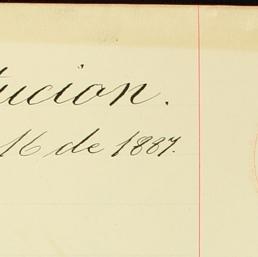 tucion.
16 de 1887.